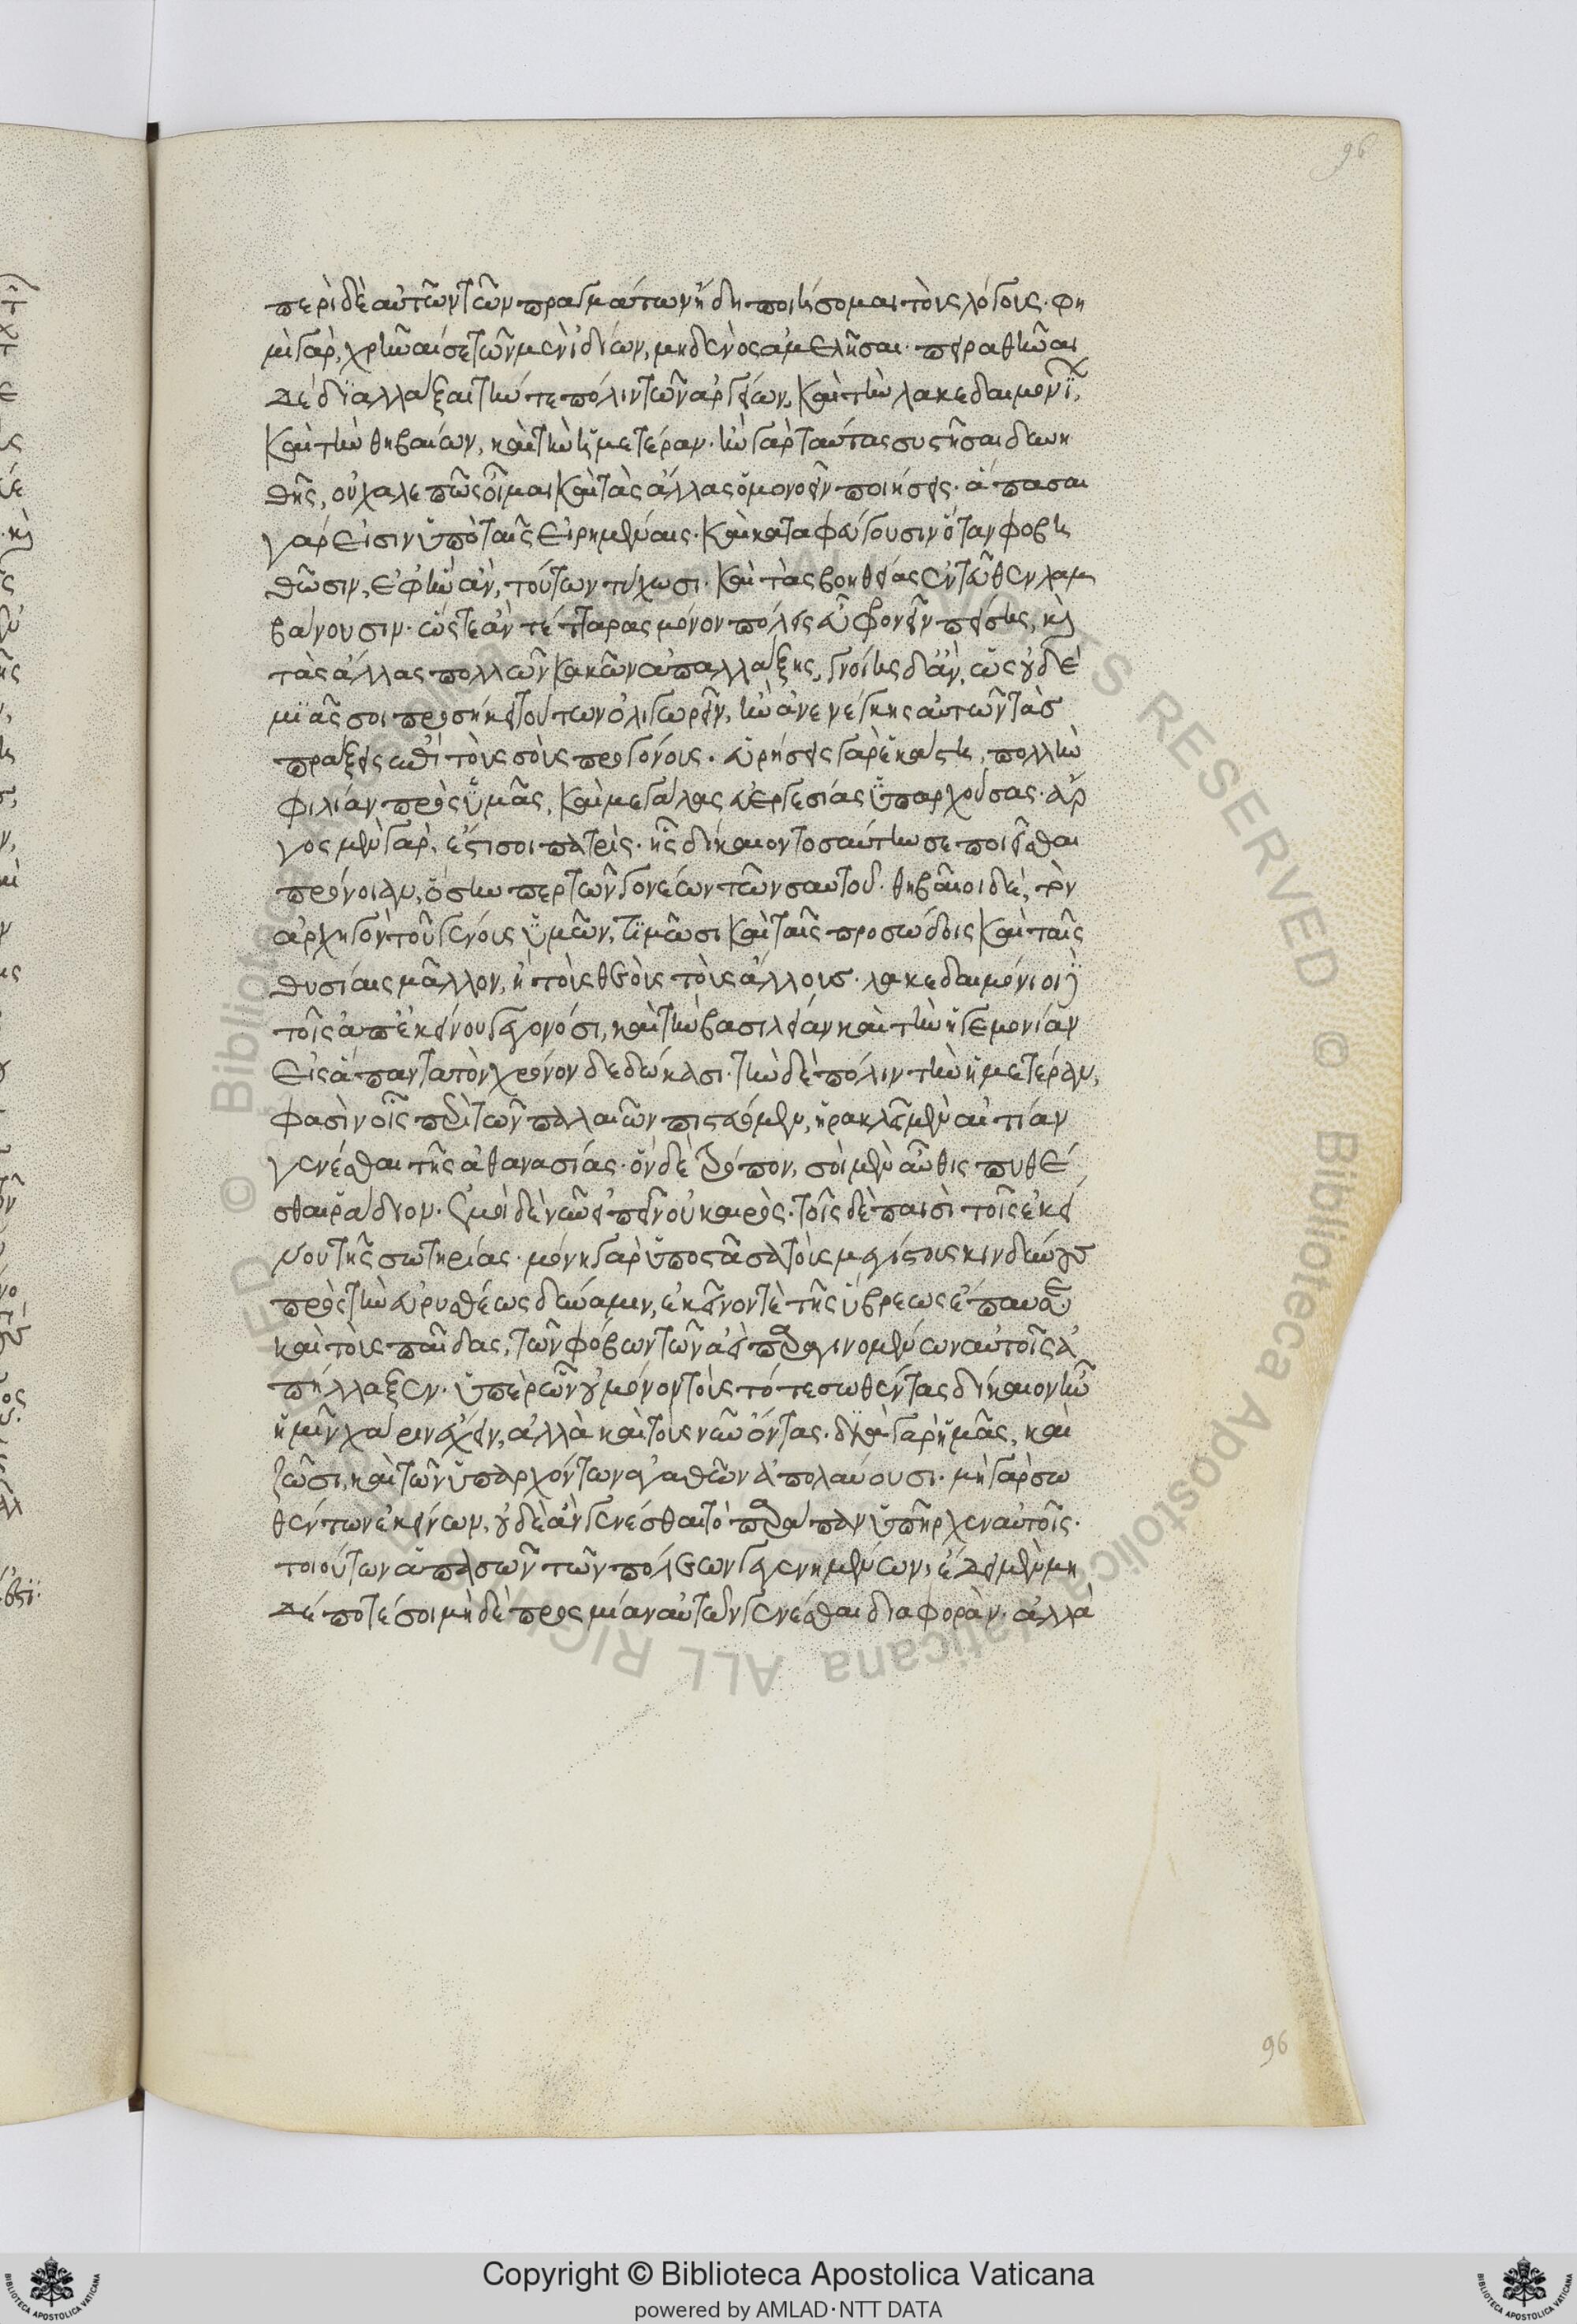 96
περὶ δὲ αὐτῶν τῶν πραγμάτων ἤδη ποιήσομαι τοὺς λόγους· φη
μὶ γὰρ, χρῆναί σε τῶν μὲν ἰδίων, μηδενὸς ἀμελῆσαι· πειραθῆναι
δέ διαλλάξαι τήν τε πόλιν τῶν ἀργείων, καὶ τὴν λακεδαιμονί,
καὶ τὴν θηβαίων, καὶ τὴν ἡμετέραν· ἢν γὰρ ταύτας συστῆσαι δυνη
θῆς, οὐ χαλεπῶς οἶμαι καὶ τὰς ἄλλας ὁμονοεῖν ποιήσεις· ἅπασαι
γάρ εἰσιν ὑπὸ ταῖς εἰρημέναις· καὶ καταφεύγουσιν ὅταν φοβη
θῶσιν, ἐφ ἣν ἂν, τούτων τύχωσι· καὶ τὰς βοηθείας ἐντεῦθεν λαμ
βάνουσιν· ὥστε ἂν τέτταρας μόνον πόλεις εὖ φρονεῖν πείσης, καὶ
τὰς ἄλλας πολλῶν κακῶν ἀπαλλάξης, γνοίης δ' ἂν, ὡς οὐδε
μιᾶς σοι προσήκει τούτων ὀλιγωρεῖν, ἢν ἀνενέγκης αὐτῶν τὰσ
πράξεις ἐπὶ τοὺς σοὺς προγόνους· εὑρήσεις γὰρ ἑκάστη, πολλὴν
φιλίαν πρὸς ὑμᾶς, καὶ μεγάλας εὐεργεσίας ὑπαρχούσας· ἄρ
γος μὲν γὰρ, ἐστί σοι πατρὶς· ἧς δίκαιον τοσαύτην σε ποιεῖσθαι
πρόνοιαν, ὅσην περ τῶν γονέων τῶν σαυτοῦ· θηβαῖοι δὲ, τὸν
ἀρχηγὸν τοῦ γένους ὑμῶν, τιμῶσι καὶ ταῖς προσόδοις καὶ ταῖς
θυσίαις μᾶλλον, ἢ τοὺς θεοὺς τοὺς ἄλλουσ· λακεδαιμόνιοι δὲ
τοῖς ἀπ' ἐκείνου γεγονόσι, καὶ τὴν βασιλείαν καὶ τὴν ἡγεμονίαν
εἰς ἅπαντα τὸν χρόνον δεδώκασι· τὴν δὲ πόλιν τὴν ἡμετέραν,
φασὶν οἷς περὶ τῶν παλαιῶν πιστεύομεν, ἡρακλεῖ μὲν αἰτίαν
γενέσθαι τῆς ἀθανασίας· ὃν δὲ τρόπον, σοὶ μὲν αὖθις πυθέ
σθαι ῥάδιον· ἐμοὶ δὲ νῦν εἰπεῖν οὐ καιρὸς· τοῖς δὲ παισὶ τοῖς ἐκεί
νου τῆς σωτηρίας· μόνη γὰρ ὑποστᾶσα τοὺς μεγίστους κινδύνουσ
πρὸς τὴν εὐρυσθέως δύναμιν, ἐκεῖνόν τε τῆς ὕβρεως ἔπαυσε
καὶ τοὺς παῖδας, τῶν φόβων τῶν ἀεὶ παραγινομένων αὐτοῖς ἀ
πήλλαξεν· ὑπὲρ ὧν οὐ μόνον τοὺς τότε σωθέντας δίκαιον ἦν
ἡμῖν χάριν ἔχειν, ἀλλὰ καὶ τοὺς νῦν ὄντας· διὰ γὰρ ἡμᾶς, καὶ
ζῶσι, καὶ τῶν ὑπαρχόντων ἀγαθῶν ἀπολαύουσι· μὴ γὰρ σω
θέντων ἐκείνων, οὐδὲ ἂν γενέσθαι τὸ παράπαν ὑπῆρχεν αὐτοῖς·
τοιούτων ἁπασῶν τῶν πόλεων γεγενημένων, ἔδει μὲν μη
δέποτέ σοι μηδὲ πρὸς μίαν αὐτῶν γενέσθαι διαφορὰν· ἀλλὰ
96
© Biblioteca Apostolica Vaticana ALL RIGHTS RESERVED
Copyright © Biblioteca Apostolica Vaticana
powered by AMLAD·NTT DATA
BIBLIOTECA APOSTOLICA VATICANA
BIBLIOTECA APOSTOLICA VATICANA